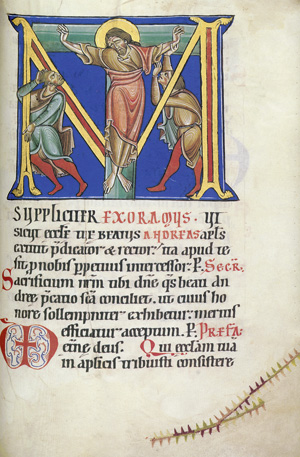 M
SUPPLICITER EXORAMUS. UT
sicut eccłe tue beatus ANDREAS apłs
extitit p̄dicator & rector. ita apud te
sit p nobis p̄petuus intercessor. P. SECR.
Sacrificium nr̄m tibi dn̄e q̄s beati an
dree p̄catio sc̄a conciliet. ut cuius ho
nore sollempniter exhibetur. meritis
efficiatur acceptum. P. PREFA.
erne deus. Qui eccłam tua
in apłicis tribuisti consistere